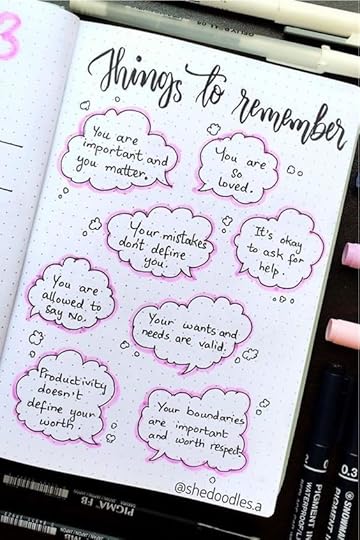 3
Things to remember
You are
important and
you matter.
You are
so
loved.
Your mistakes
dont define
you.
It's okay
to ask for
help.
You are
allowed to
say No.
Your wants and
needs are valid.
Productivity
doesn't
define your
worth.
Your boundaries
are important
and worth respect
@shedoodles.a
PIGMA FB
PIGMENT
WATERPROOF
0.3
SNOWMAN
PIGMENT